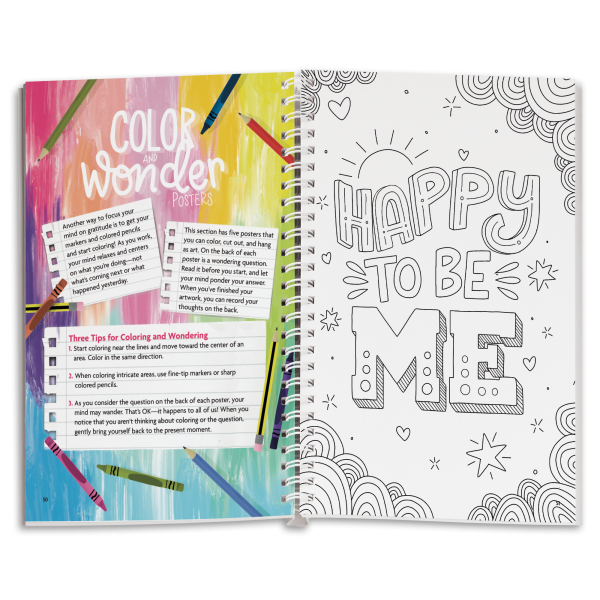 COLOR
AND
Wonder
POSTERS
Another way to focus your
mind on gratitude is to get your
markers and colored pencils
and start coloring! As you work,
your mind relaxes and centers
on what you're doing—not
what's coming next or what
happened yesterday.
This section has five posters that
you can color, cut out, and hang
as art. On the back of each
poster is a wondering question.
Read it before you start, and let
your mind ponder your answer.
When you've finished your
artwork, you can record your
thoughts on the back.
Three Tips for Coloring and Wondering
1. Start coloring near the lines and move toward the center of an
area. Color in the same direction.
2. When coloring intricate areas, use fine-tip markers or sharp
colored pencils.
3. As you consider the question on the back of each poster, your
mind may wander. That's OK—it happens to all of us! When you
notice that you aren't thinking about coloring or the question,
gently bring yourself back to the present moment.
HAPPY
TO BE
ME